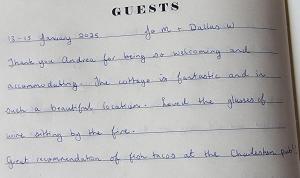 GUESTS
13-15 January 2025 Jo M + Dallas W
Thank you Andrea for being so welcoming and
accommodating. The cottage is fantastic and in
such a beautiful location. Loved the glasses of
wine sitting by the fire.
Great recommendation of fish tacos at the Charleston pub!